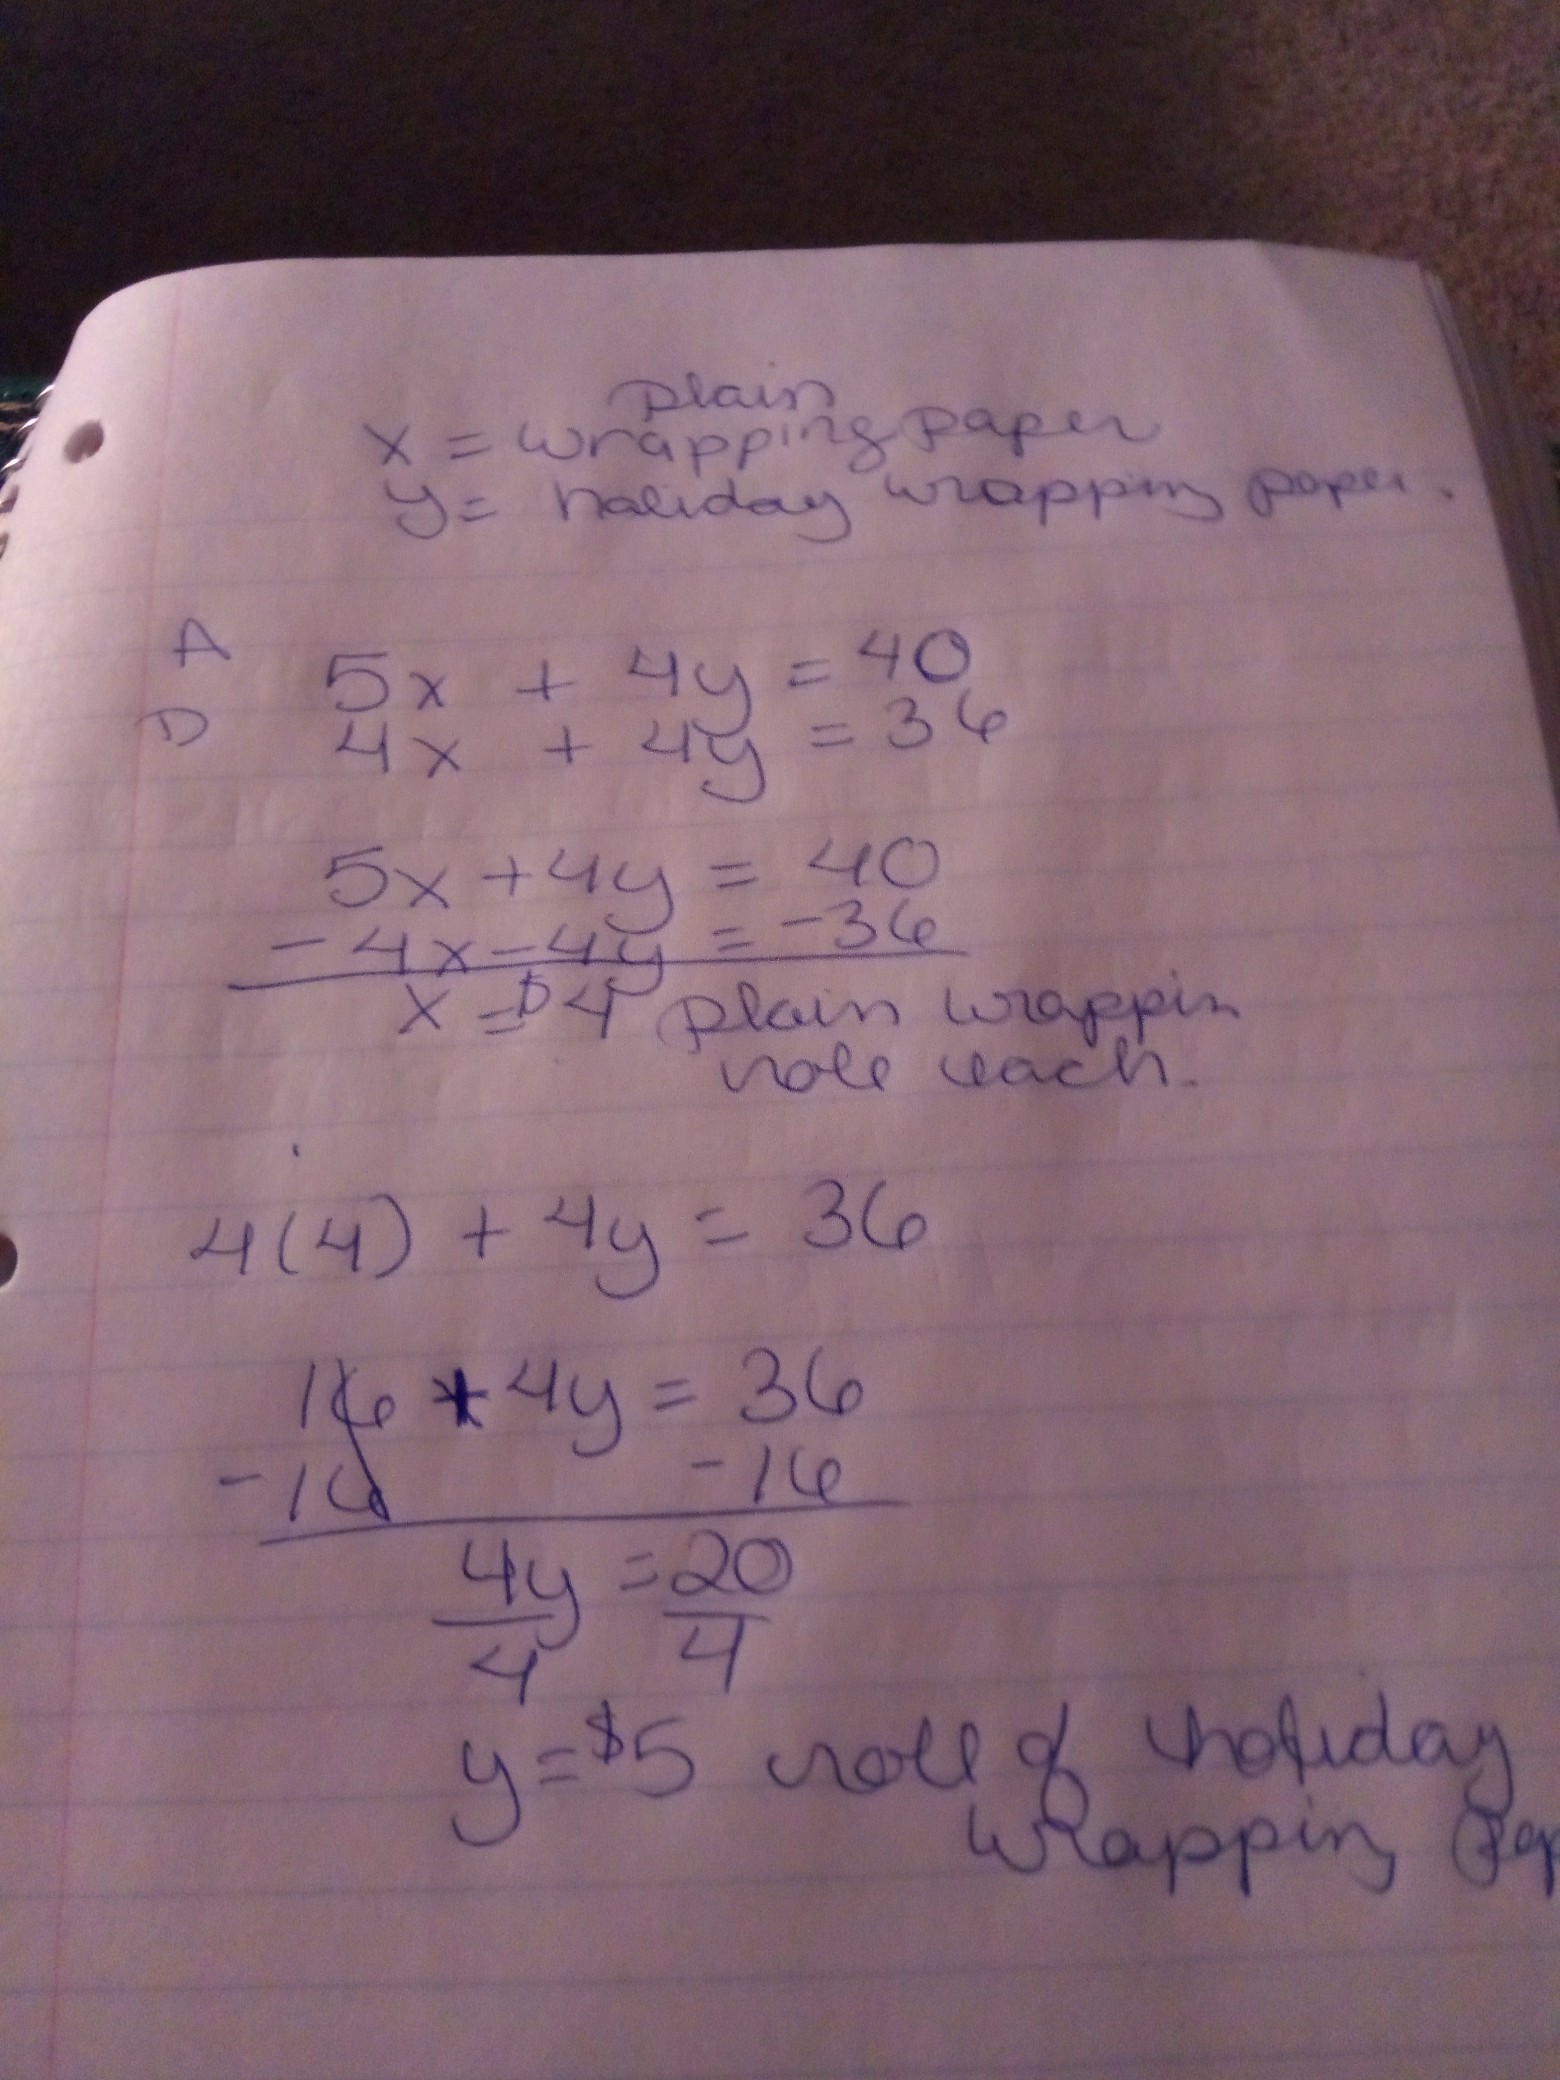 plain
x = wrapping paper
y = holiday wrapping paper.
A 5x + 4y = 40
D 4x + 4y = 36
5x + 4y = 40
- 4x - 4y = -36
x = $4 plain wrappin
role each.
4(4) + 4y = 36
16 + 4y = 36
-16 -16
4y = 20
4 4
y = $5 roll of holiday
wrapping pap